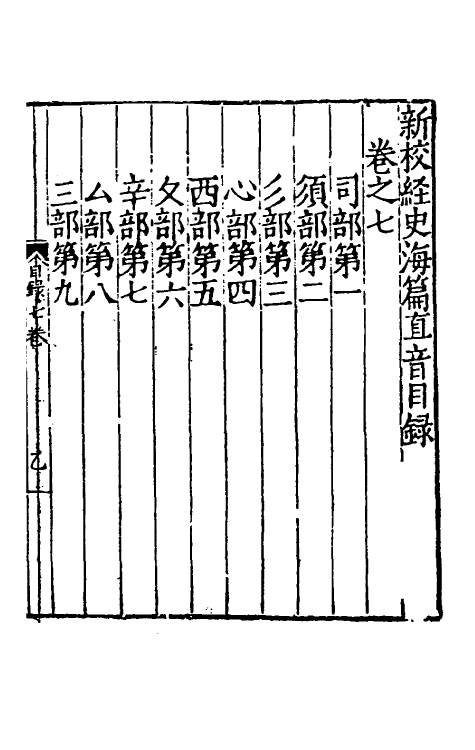 新校経史海篇直音目録
卷之七
司部第一
須部第二
彡部第三
心部第四
西部第五
夂部第六
辛部第七
厶部第八
三部第九
目録七卷
乙